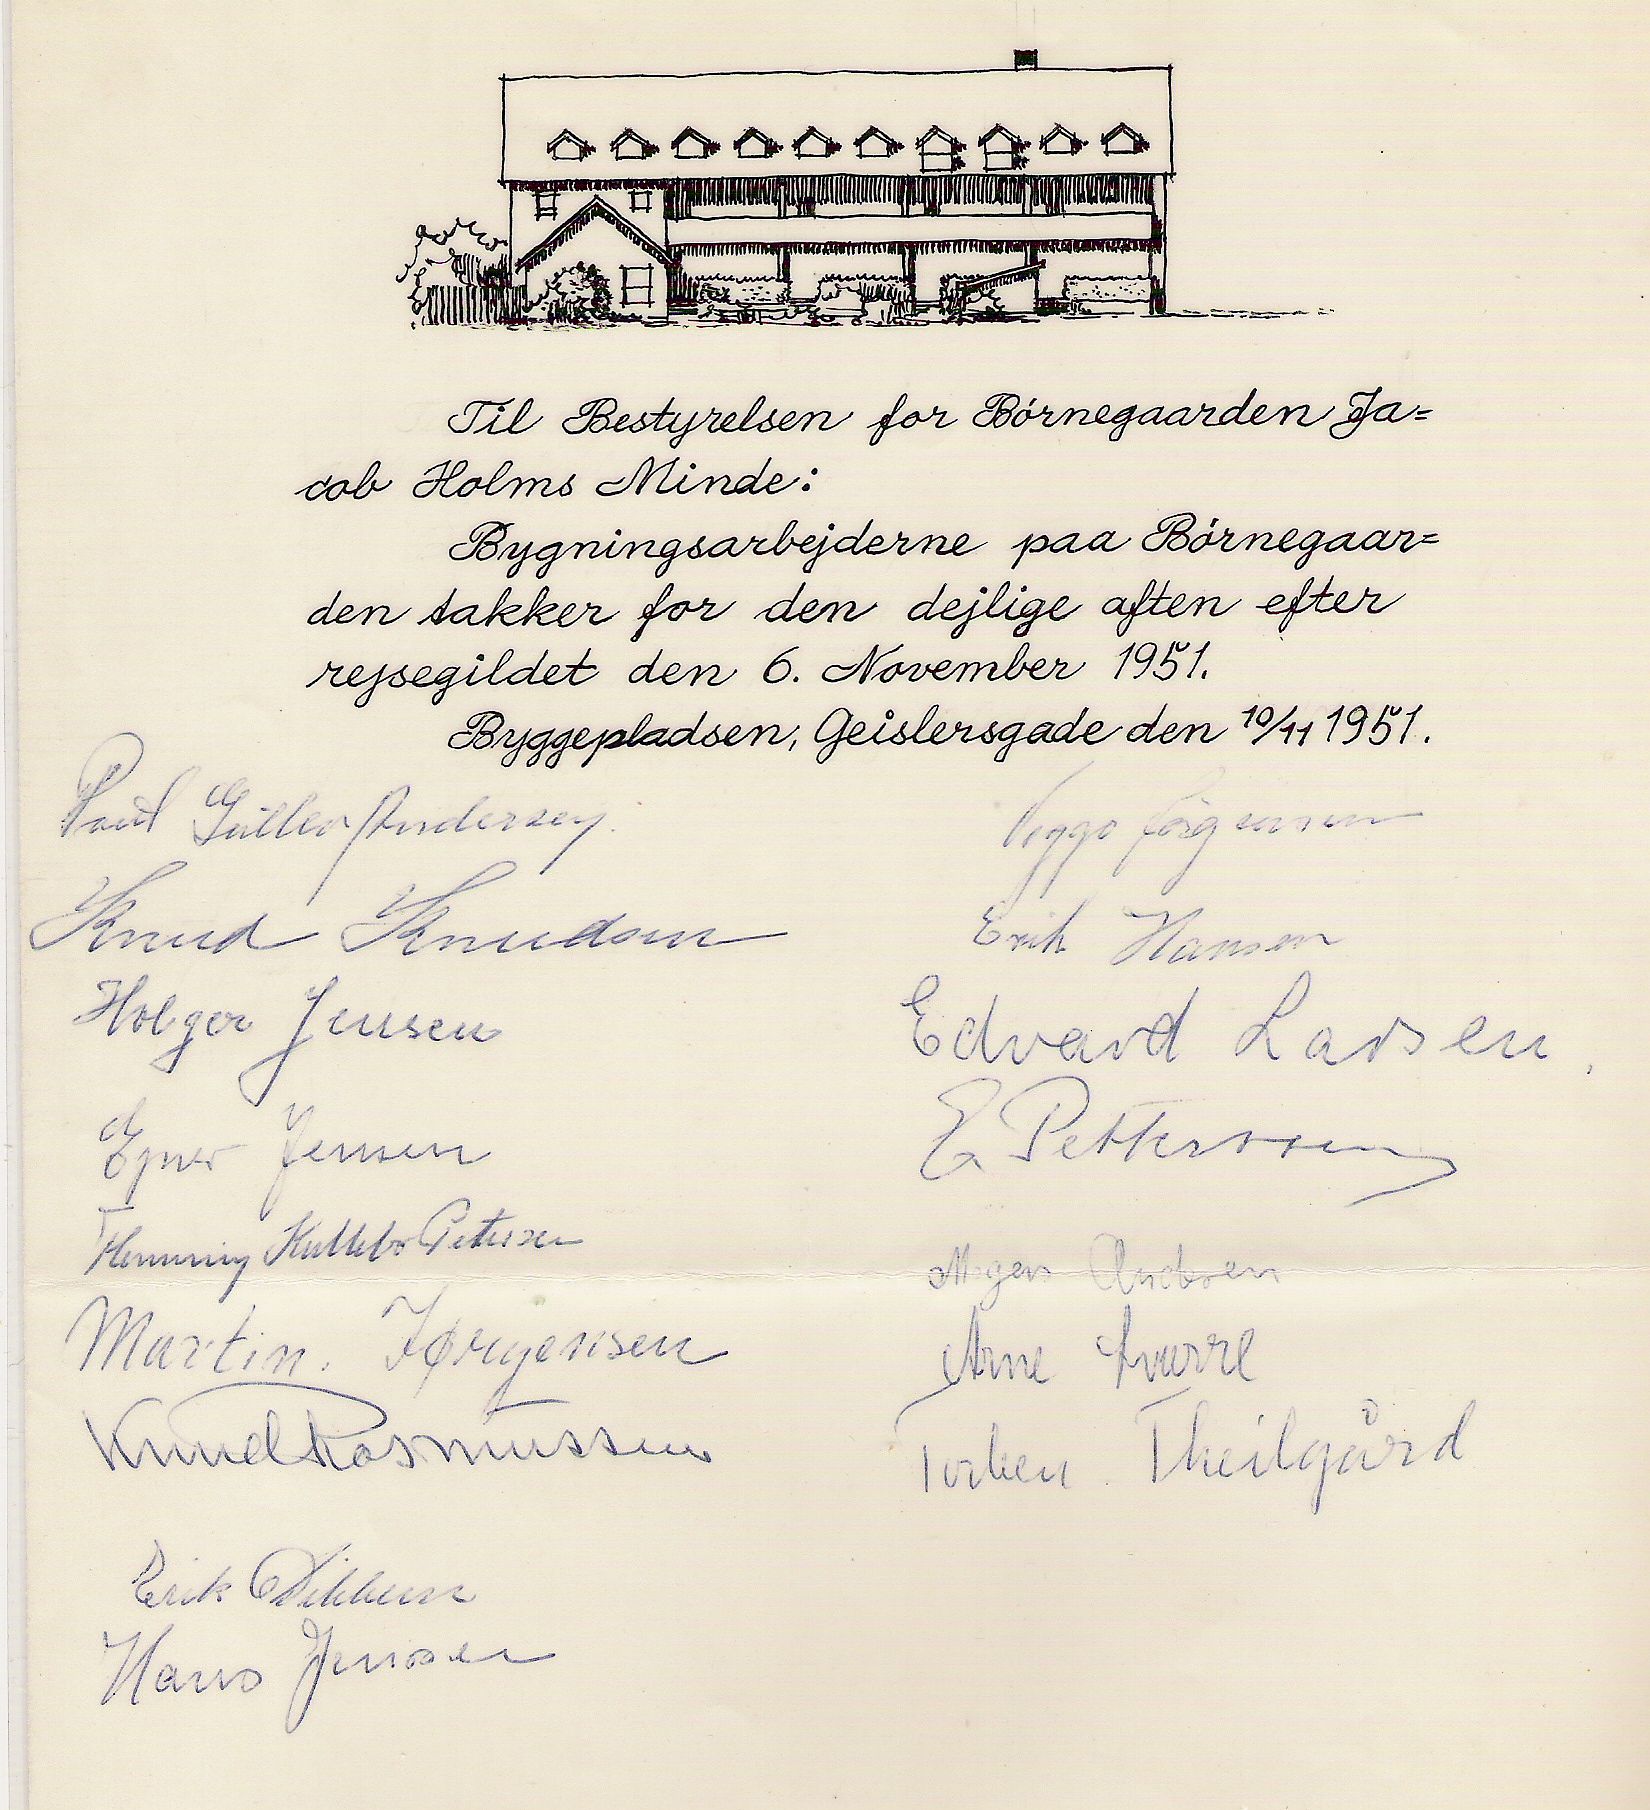 Til Bestyrelsen for Børnegaarden Ja=
cob Holms Minde:
Bygningsarbejderne paa Børnegaar=
den takker for den dejlige aften efter
rejsegildet den 6. November 1951.
Byggepladsen, Geislersgade den 10/11 1951.
Poul Andersen
Viggo Jörgensen
Knud Knudsen
Erik Hansen
Holger Jensen
Edvard Larsen
Ejner Jensen
E. Pettersen
Flemming Petersen
Mogens Andersen
Martin. Jørgensen
Arne
Knud Rasmussen
Torben Theilgård
Erik
Hans Jensen